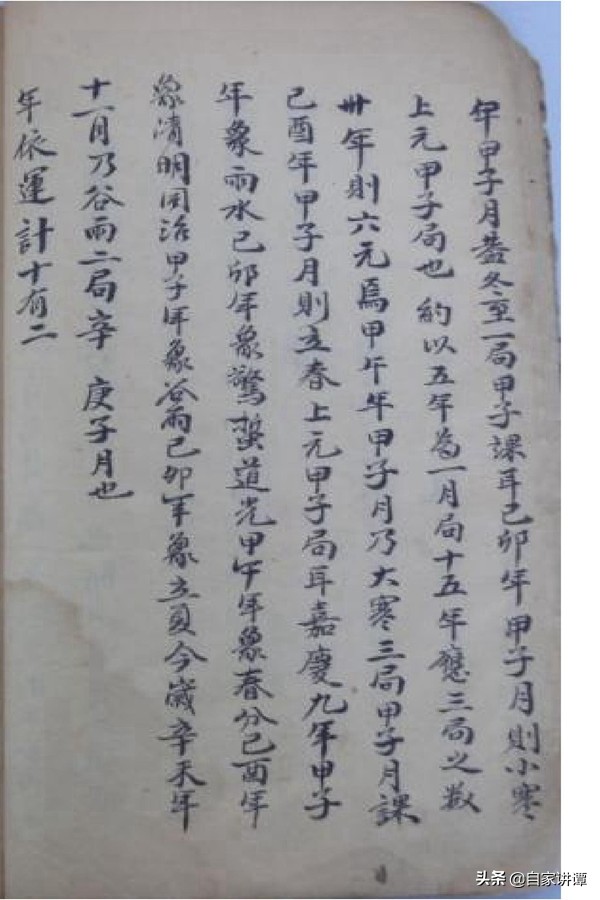 年甲子月葢冬至一局甲子課耳己卯年甲子月則小寒
上元甲子局也 約以五年為一月局十五年應三局之数
卅年則六元焉甲午年甲子月乃大寒三局甲子月課
己酉年甲子月則立春上元甲子局耳嘉慶九年甲子
年象雨水己卯年象驚蟄道光甲午年象春分己酉年
象清明同治甲子年象谷雨己卯年象立夏今歲辛未年
十一月乃谷雨二局辛 庚子月也
年依運計十有二
头条 @自家讲谭